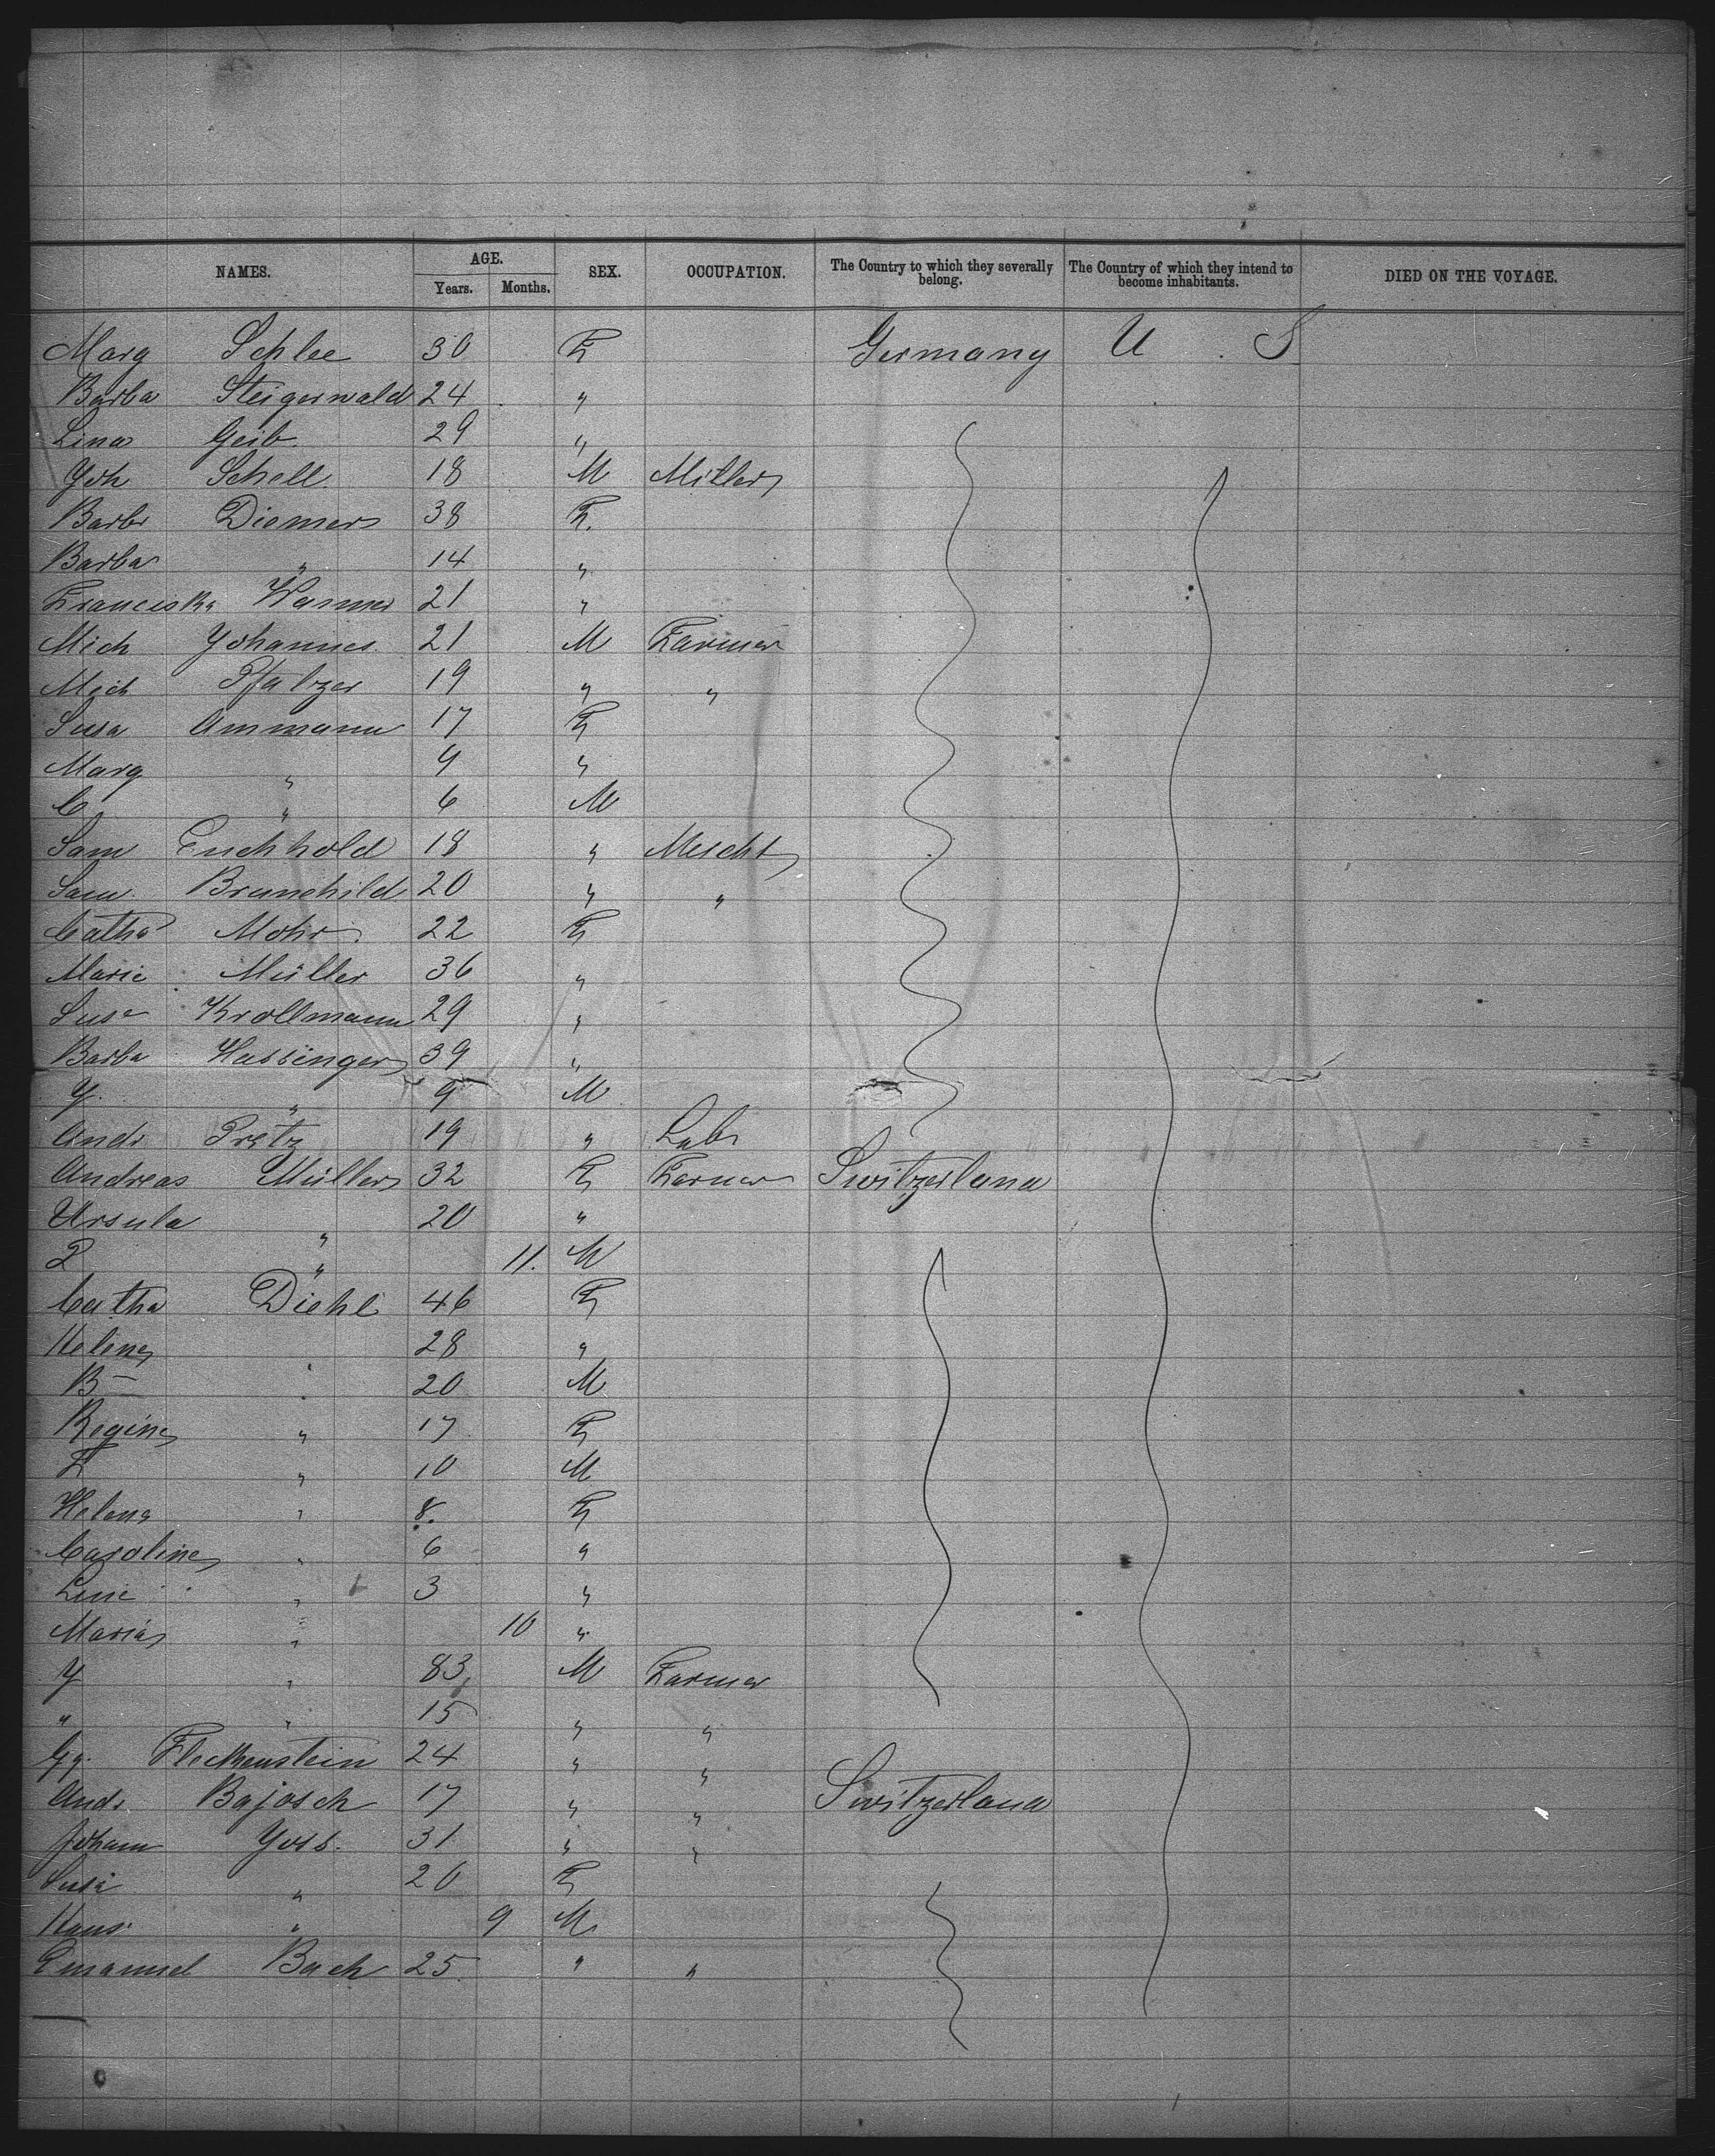 NAMES. AGE. SEX. OCCUPATION. The Country to which they severally belong. The Country of which they intend to become inhabitants. DIED ON THE VOYAGE.
Years. Months.
Marg Schlee 30 F Germany U. S
Barba Steigerwald 24 "
Lina Geib 29 "
Joh Schell 18 M Miller
Barbr Diemer 38 F.
Barba " 14 "
Franciska Wanner 21 "
Mich Johannes 21 M Farmer
Mich Pfalzer 19 " "
Susa Ammann 17 F
Marg " 9 "
C " 6 M
Sam Euchhold 18 " Mercht
Sam Brunehild 20 " "
Catha Mohr 22 F
Marie Müller 36 "
Susa Krollmann 29 "
Barba Hassinger 39 "
J. " 9 M
Andr Pretz 19 " Labr
Andreas Müller 32 F Farmer Switzerland
Ursula " 20 "
P " 11. M
Catha Diehl 46 F
Helene " 28 "
B— " 20 M
Regine " 17 F
F " 10 M
Helena " 8. F
Caroline " 6 "
Line " 3 "
Maria " 10 "
J " 83 M Farmer
" " 15 " "
Gg. Fleckenstein 24 " "
Andr Bajosch 17 " " Switzerland
Johann Joss. 31 " "
Susi " 20 F
Hans " 9 M
Emanuel Bach 25. " "